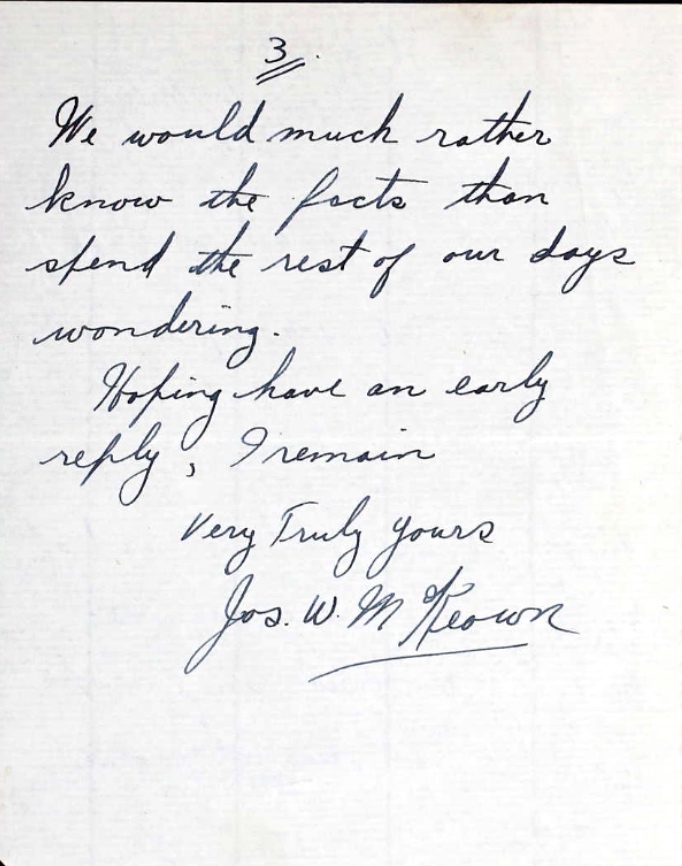 3.
We would much rather
know the facts than
spend the rest of our days
wondering.
Hoping have an early
reply, I remain
Very Truly yours
Jos. W. McKeown